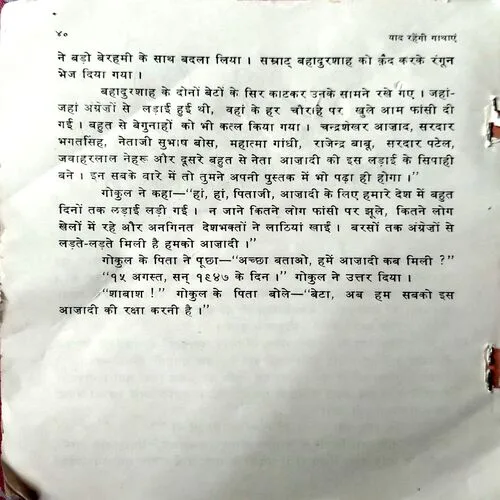 ४०
याद रहेंगी गाथाएं
ने बड़ी बेरहमी के साथ बदला लिया । सम्राट् बहादुरशाह को क़ैद करके रंगून
भेज दिया गया ।
बहादुरशाह के दोनों बेटों के सिर काटकर उनके सामने रखे गए । जहां-
जहां अंग्रेजों से लड़ाई हुई थी, वहां के हर चौराहे पर खुले आम फांसी दी
गई । बहुत से बेगुनाहों को भी कत्ल किया गया । चन्द्रशेखर आज़ाद, सरदार
भगतसिंह, नेताजी सुभाष बोस, महात्मा गांधी, राजेन्द्र बाबू, सरदार पटेल,
जवाहरलाल नेहरू और दूसरे बहुत से नेता आज़ादी की इस लड़ाई के सिपाही
बने । इन सबके बारे में तो तुमने अपनी पुस्तक में भी पढ़ा ही होगा ।”
गोकुल ने कहा—“हां, हां, पिताजी, आज़ादी के लिए हमारे देश में बहुत
दिनों तक लड़ाई लड़ी गई । न जाने कितने लोग फांसी पर झूले, कितने लोग
जेलों में रहे और अनगिनत देशभक्तों ने लाठियां खाईं । बरसों तक अंग्रेजों से
लड़ते-लड़ते मिली है हमको आज़ादी ।”
गोकुल के पिता ने पूछा—“अच्छा बताओ, हमें आज़ादी कब मिली ?”
“१५ अगस्त, सन् १९४७ के दिन ।” गोकुल ने उत्तर दिया ।
“शाबाश !” गोकुल के पिता बोले—“बेटा, अब हम सबको इस
आज़ादी की रक्षा करनी है ।”